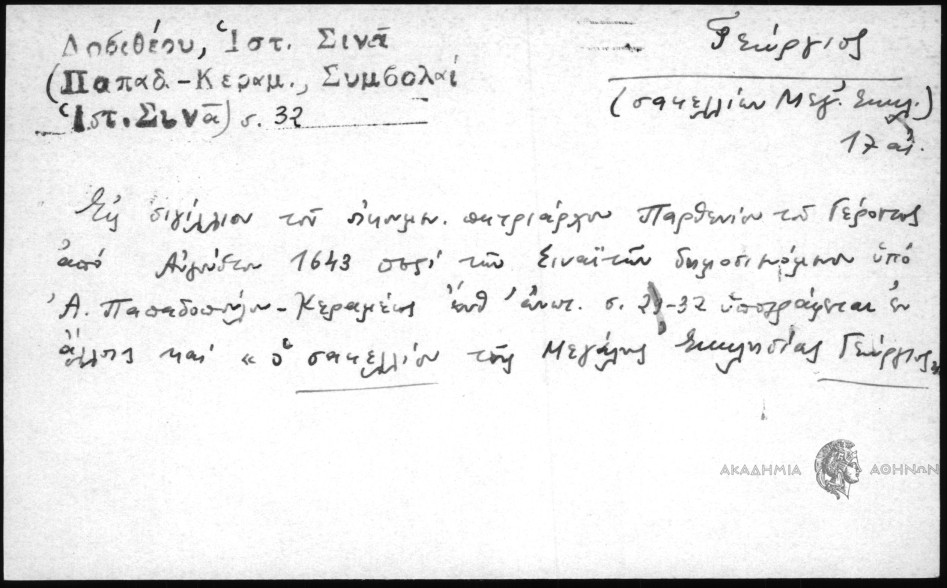 Δοσιθέου, Ἱστ. Σινᾶ
(Παπαδ.-Κεραμ., Συμβολαί
Ἱστ. Σινᾶ) σ. 32
Γεώργιος
(σακελλίων Μεγ. Ἐκκλ.)
17 αἰ.
Εἰς σιγίλλιον τοῦ οἰκουμ. πατριάρχου Παρθενίου τοῦ Γέροντος
ἀπό Αὐγούστου 1643 περί τῶν Σιναϊτῶν δημοσιευόμενον ὑπό
Ἀ. Παπαδοπούλου-Κεραμέως ἔνθ' ἀνωτ. σ. -32 ὑπογράφεται ἐν
ἄλλοις καί « ὁ σακελλίου τῆς Μεγάλης Ἐκκλησίας Γεώργιος»
ΑΚΑΔΗΜΙΑ ΑΘΗΝΩΝ